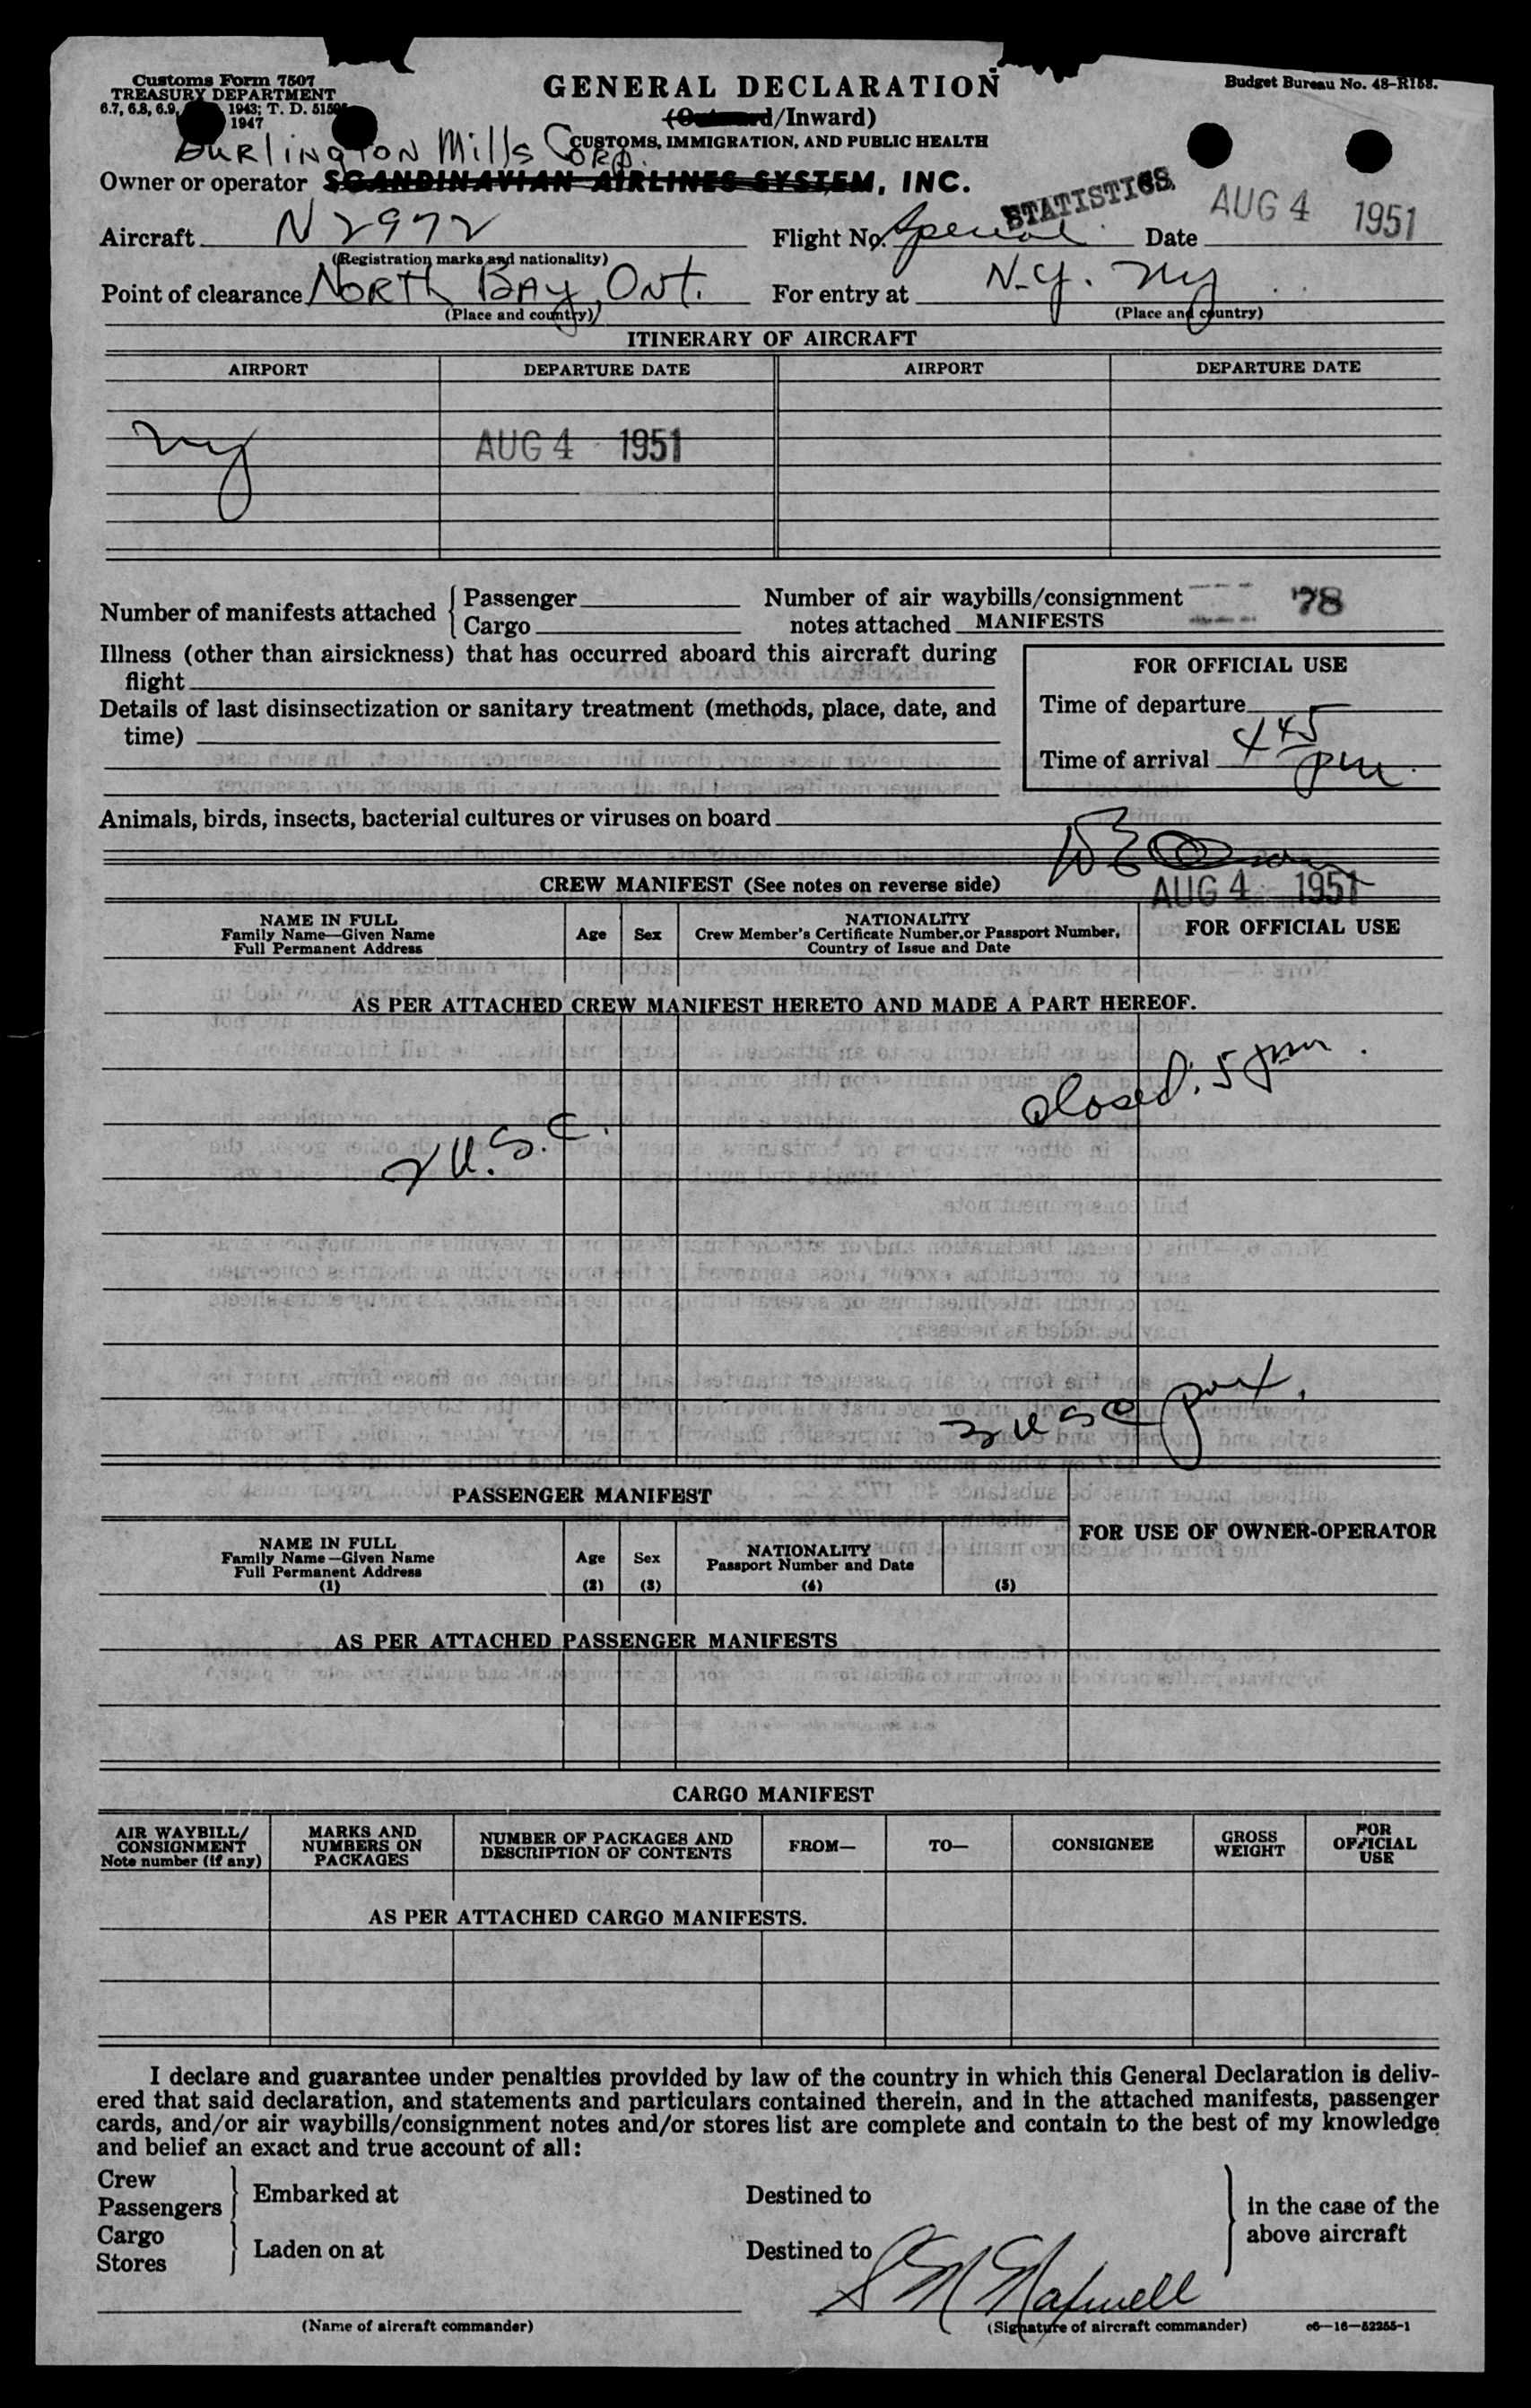 Customs Form 7507
TREASURY DEPARTMENT
6.7, 6.8, 6.9, 1943; T. D.
1947
GENERAL DECLARATION
/Inward)
CUSTOMS, IMMIGRATION, AND PUBLIC HEALTH
Budget Bureau No. 48-R153.
BURLINGTON Mills CORP.
Owner or operator SCANDINAVIAN AIRLINES SYSTEM, INC.
STATISTICS
Aircraft N2972 Flight No. Special Date AUG 4 1951
(Registration marks and nationality)
Point of clearance NORTH BAY, ONT. For entry at N.Y. NY
(Place and country) (Place and country)
ITINERARY OF AIRCRAFT
AIRPORT DEPARTURE DATE AIRPORT DEPARTURE DATE
NY AUG 4 1951
Number of manifests attached { Passenger Number of air waybills/consignment 78
Cargo notes attached MANIFESTS
Illness (other than airsickness) that has occurred aboard this aircraft during
flight
FOR OFFICIAL USE
Details of last disinsectization or sanitary treatment (methods, place, date, and
time)
Time of departure
Time of arrival 4 45 pm
Animals, birds, insects, bacterial cultures or viruses on board
CREW MANIFEST (See notes on reverse side) AUG 4 1951
NAME IN FULL
Family Name—Given Name
Full Permanent Address
Age Sex
NATIONALITY
Crew Member's Certificate Number, or Passport Number,
Country of Issue and Date
FOR OFFICIAL USE
AS PER ATTACHED CREW MANIFEST HERETO AND MADE A PART HEREOF.
closed: 5 pm.
2 U.S.C.
3 USC pax.
PASSENGER MANIFEST
FOR USE OF OWNER-OPERATOR
NAME IN FULL
Family Name—Given Name
Full Permanent Address
(1)
Age
(2)
Sex
(3)
NATIONALITY
Passport Number and Date
(4)
(5)
AS PER ATTACHED PASSENGER MANIFESTS
CARGO MANIFEST
AIR WAYBILL/
CONSIGNMENT
Note number (if any)
MARKS AND
NUMBERS ON
PACKAGES
NUMBER OF PACKAGES AND
DESCRIPTION OF CONTENTS
FROM— TO— CONSIGNEE
GROSS
WEIGHT
FOR
OFFICIAL
USE
AS PER ATTACHED CARGO MANIFESTS.
I declare and guarantee under penalties provided by law of the country in which this General Declaration is deliv-
ered that said declaration, and statements and particulars contained therein, and in the attached manifests, passenger
cards, and/or air waybills/consignment notes and/or stores list are complete and contain to the best of my knowledge
and belief an exact and true account of all:
Crew
Passengers } Embarked at Destined to
Cargo
Stores } Laden on at Destined to
in the case of the
above aircraft
(Name of aircraft commander) (Signature of aircraft commander) c6—16—52255-1